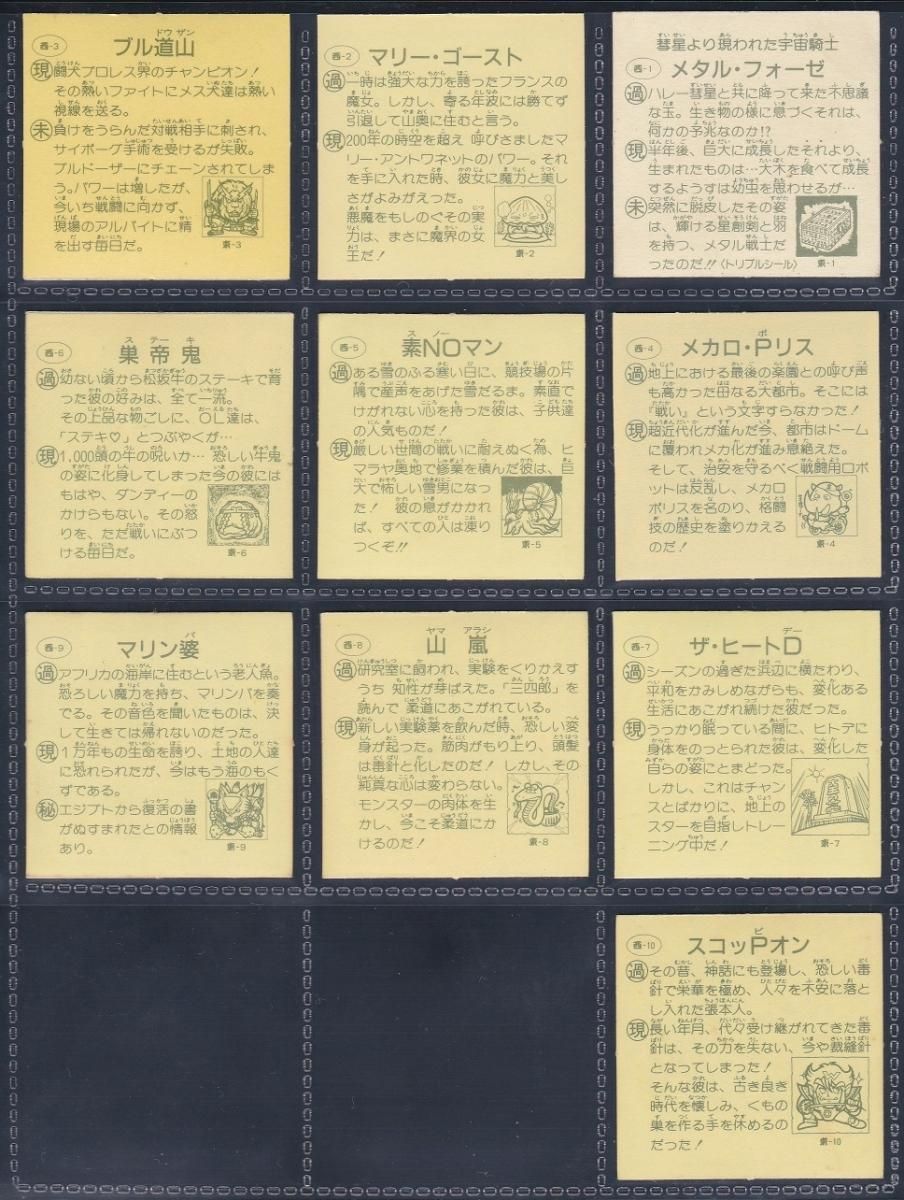 西-3
ブル道山
現 闘犬プロレス界のチャンピオン!
その熱いファイトにメス犬達は熱い
視線を送る。
未 負けをうらんだ対戦相手に刺され、
サイボーグ手術を受けるが失敗。
ブルドーザーにチェーンされてしま
う。パワーは増したが、
今いち戦闘に向かず、
現場のアルバイトに精
を出す毎日だ。
素-3
西-2
マリー・ゴースト
過 一時は強大な力を誇ったフランスの
魔女。しかし、寄る年波には勝てず
引退して山奥に住むと言う。
現 200年の時空を超え 呼びさましたマ
リー・アントワネットのパワー。それ
を手に入れた時、彼女に魔力と美し
さがよみがえった。
悪魔をもしのぐその実
力は、まさに魔界の女
王だ!
素-2
彗星より現われた宇宙騎士
西-1
メタル・フォーゼ
過 ハレー彗星と共に降って来た不思議
な玉。生き物の様に息づくそれは、
何かの予兆なのか!?
現 半年後、巨大に成長したそれより、
生まれたものは…大木を食べて成長
するようすは幼虫を思わせるが…
未 突然に脱皮したその姿
は、輝ける星創剣と羽
を持つ、メタル戦士だ
ったのだ!!〈トリプルシール〉
素-1
西-6
巣帝鬼
過 幼ない頃から松坂牛のステーキで育
った彼の好みは、全て一流。
その上品な物ごしに、OL達は、
「ステキ♡」とつぶやくが…
現 1,000頭の牛の呪いか… 恐しい牛鬼
の姿に化身してしまった今の彼には
もはや、ダンディーの
かけらもない。その怒
りを、ただ戦いにぶつ
ける毎日だ。
素-6
西-5
素NOマン
過 ある雪のふる寒い日に、競技場の片
隅で産声をあげた雪だるま。素直で
けがれない心を持った彼は、子供達
の人気ものだ!
現 厳しい世間の戦いに耐えぬく為、ヒ
マラヤ奥地で修業を積んだ彼は、巨
大で怖しい雪男になっ
た! 彼の息がかかれ
ば、すべての人は凍り
つくぞ!!
素-5
西-4
メカロ・Pリス
過 地上における最後の楽園との呼び声
も高かった母なる大都市。そこには
『戦い』という文字すらなかった!
現 超近代化が進んだ今、都市はドーム
に覆われメカ化が進み息絶えた。
そして、治安を守るべく戦闘用ロボ
ットは反乱し、メカロ
ポリスを名のり、格闘
技の歴史を塗りかえる
のだ!
素-4
西-9
マリン婆
過 アフリカの海岸に住むという老人魚。
恐ろしい魔力を持ち、マリンバを奏
でる。その音色を聞いたものは、決
して生きては帰れないのだった。
現 1万年もの生命を誇り、土地の人達
に恐れられたが、今はもう海のもく
ずである。
秘 エジプトから復活の書
がぬすまれたとの情報
あり。
素-9
西-8
山嵐
過 研究室に飼われ、実験をくりかえす
うち 知性が芽ばえた。「三四郎」を
読んで 柔道にあこがれている。
現 新しい実験薬を飲んだ時、恐しい変
身が起った。筋肉がもり上り、頭髪
は毒針と化したのだ! しかし、その
純真な心は変わらない。
モンスターの肉体を生
かし、今こそ柔道にか
けるのだ!
素-8
西-7
ザ・ヒートD
過 シーズンの過ぎた浜辺に横たわり、
平和をかみしめながらも、変化ある
生活にあこがれ続けた彼だった。
現 うっかり眠っている間に、ヒトデに
身体をのっとられた彼は、変化した
自らの姿にとまどった。
しかし、これはチャン
スとばかりに、地上の
スターを目指しトレー
ニング中だ!
素-7
西-10
スコッPオン
過 その昔、神話にも登場し、恐しい毒
針で栄華を極め、人々を不安に落と
し入れた張本人。
現 長い年月、代々受け継がれてきた毒
針は、その力を失ない、今や裁縫針
となってしまった!
そんな彼は、古き良き
時代を懐しみ、くもの
巣を作る手を休めるの
だった!
素-10